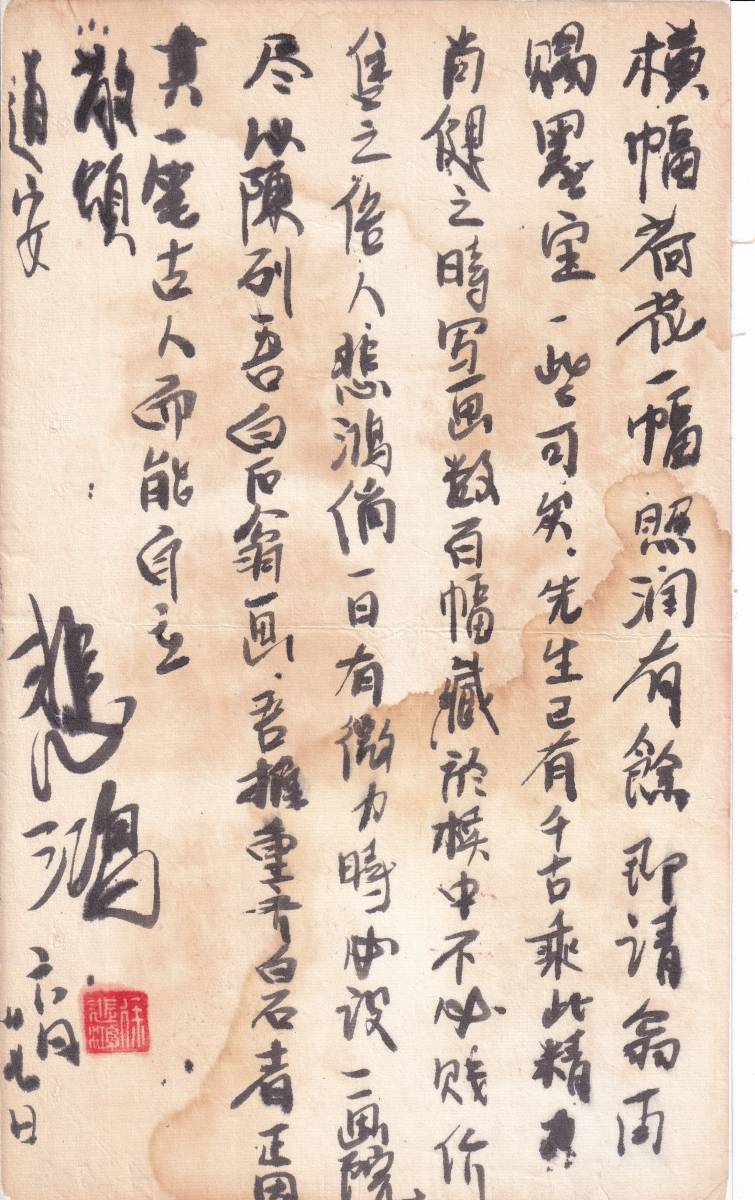 橫幅荷花一幅照润有餘即请翁再
赐墨宝一些可矣先生已有千古乘此精力
尚健之時写画数百幅藏於樸中不必贱价
售之俗人悲鴻倘一日有微力時必设一画院
尽以陳列吾白石翁画吾推重齐白石者正因
其一笔古人而能自立
敬頌
道安
悲鴻
六月廿九日
徐悲鴻